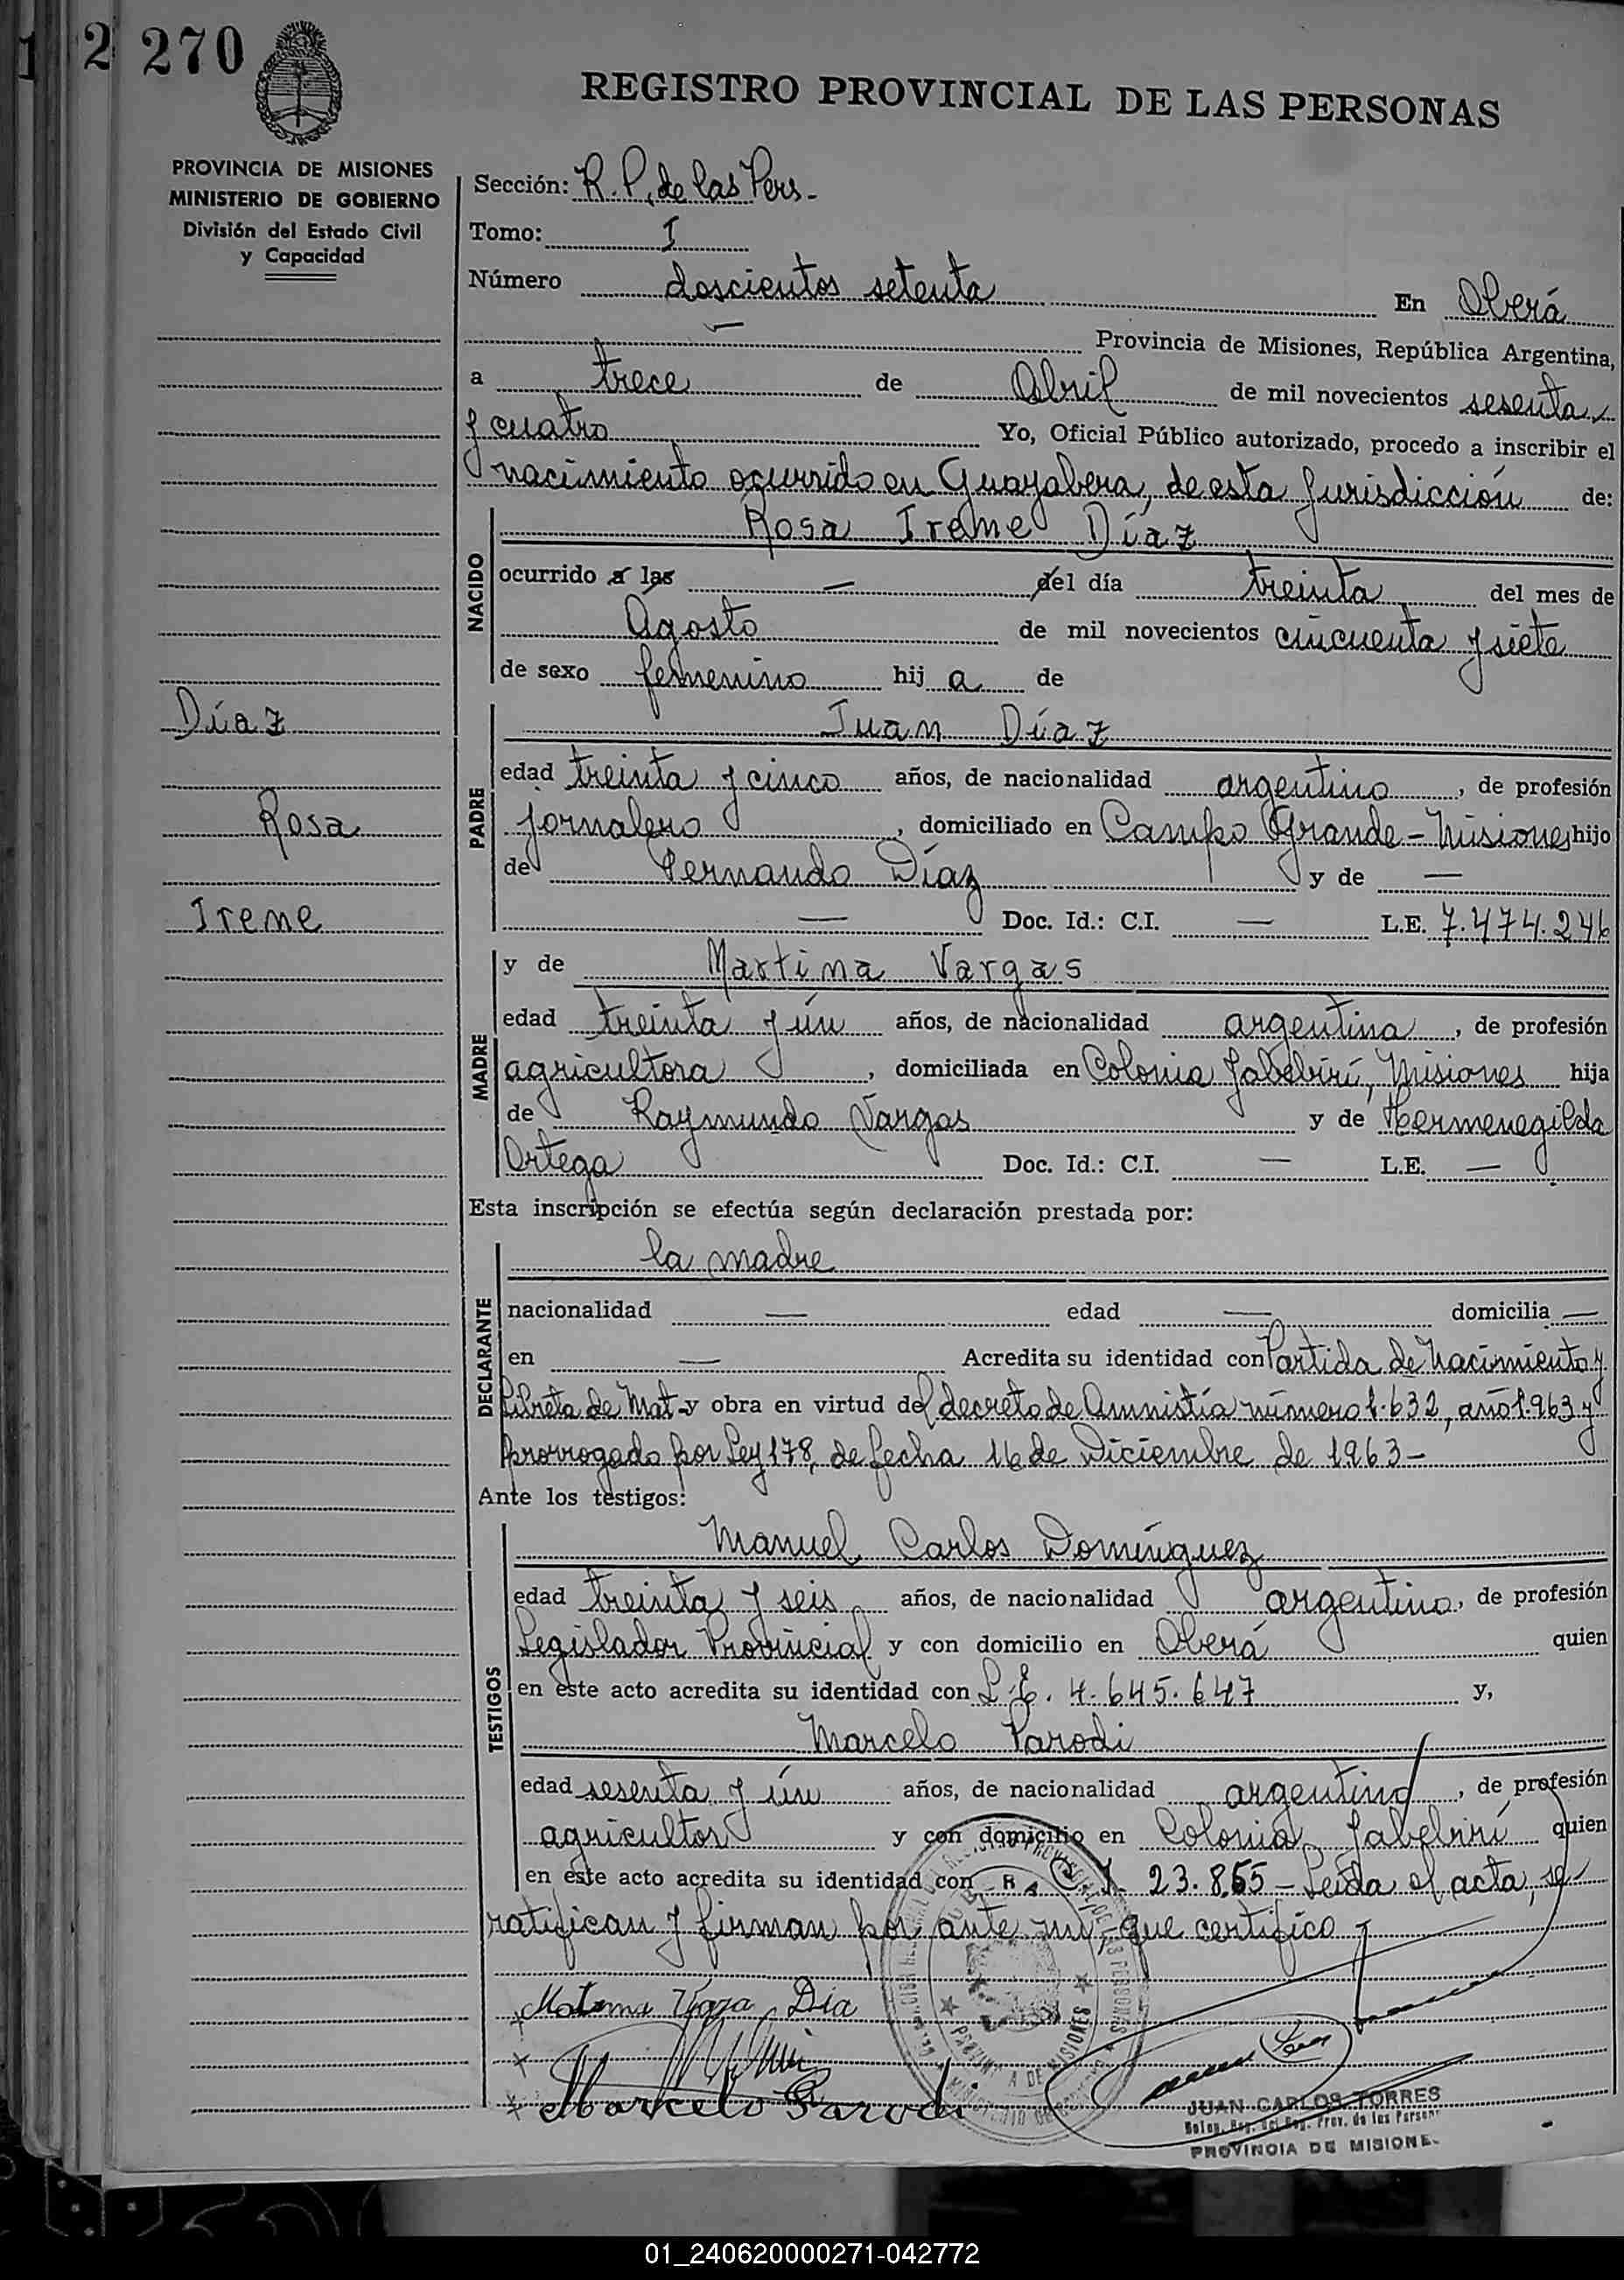 1 2 270
REGISTRO PROVINCIAL DE LAS PERSONAS
PROVINCIA DE MISIONES
MINISTERIO DE GOBIERNO
División del Estado Civil
y Capacidad
Sección: R. P. de las Pers.-
Tomo: I
Número doscientos setenta En Oberá
— Provincia de Misiones, República Argentina,
a trece de Abril de mil novecientos sesenta
y cuatro Yo, Oficial Público autorizado, procedo a inscribir el
nacimiento ocurrido en Guayabera, de esta Jurisdicción de:
NACIDO
Rosa Irene Díaz
ocurrido a las — del día treinta del mes de
Agosto de mil novecientos cincuenta y siete
de sexo femenino hij a de
Díaz
Rosa
Irene
PADRE
Juan Díaz
edad treinta y cinco años, de nacionalidad argentino, de profesión
jornalero, domiciliado en Campo Grande - Misiones hijo
de Fernando Díaz y de —
— Doc. Id.: C.I. — L.E. 7.474.246
MADRE
y de Martina Vargas
edad treinta y ún años, de nacionalidad argentina, de profesión
agricultora, domiciliada en Colonia Jabebirí, Misiones hija
de Raymundo Vargas y de Hermenegilda
Ortega Doc. Id.: C.I. — L.E. —
Esta inscripción se efectúa según declaración prestada por:
DECLARANTE
la madre
nacionalidad — edad — domicilia —
en — Acredita su identidad con Partida de Nacimiento y
Libreta de Mat. y obra en virtud del decreto de Amnistía número 1.632, año 1.963 y
prorrogado por Ley 178, de fecha 16 de Diciembre de 1963 -
Ante los testigos:
TESTIGOS
Manuel Carlos Domínguez
edad treinta y seis años, de nacionalidad argentino, de profesión
Legislador Provincial y con domicilio en Oberá quien
en este acto acredita su identidad con L.E. 4.645.647 y,
Marcelo Parodi
edad sesenta y ún años, de nacionalidad argentino, de profesión
agricultor y con domicilio en Colonia Jabebirí quien
en este acto acredita su identidad con C. I. 23.855 - Leída el acta, se
ratifican y firman por ante mi, que certifico
Marcelo Parodi
JUAN CARLOS TORRES
PROVINCIA DE MISIONE
01_240620000271-042772